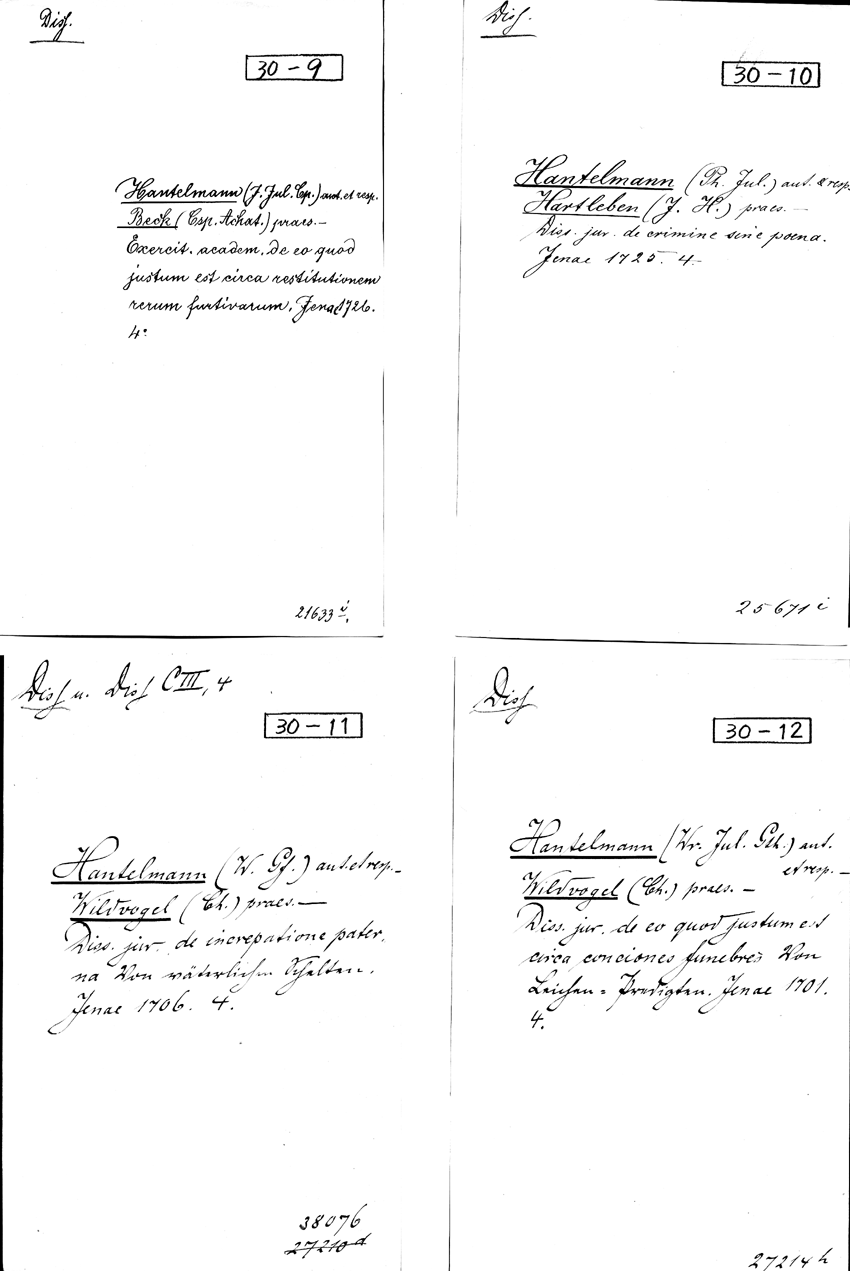 Diss.
30-9
Hantelmann (J. Jul. Cp.) aut. et resp.
Beck (Csp. Achat.) praes. —
Exercit. academ. de eo quod
justum est circa restitutionem
rerum furtivarum. Jenae 1726.
4°
21633 i.
Diss.
30-10
Hantelmann (Ph. Jul.) aut. & resp.
Hartleben (J. H.) praes. —
Diss. jur. de crimine sine poena.
Jenae 1725. 4.
25671 i
Diss u. Diss C III, 4
30-11
Hantelmann (W. Gf.) aut. et resp. —
Wildvogel (Ch.) praes. —
Diss. jur. de increpatione pater,
na Von väterlichem Schelten.
Jenae 1706. 4.
38076
27210 d
Diss
30-12
Hantelmann (Wr. Jul. Gth.) aut.
et resp. —
Wildvogel (Ch.) praes. —
Diss. jur. de eo quod justum est
circa conciones funebres Von
Leichen = Predigten. Jenae 1701.
4.
27214 h